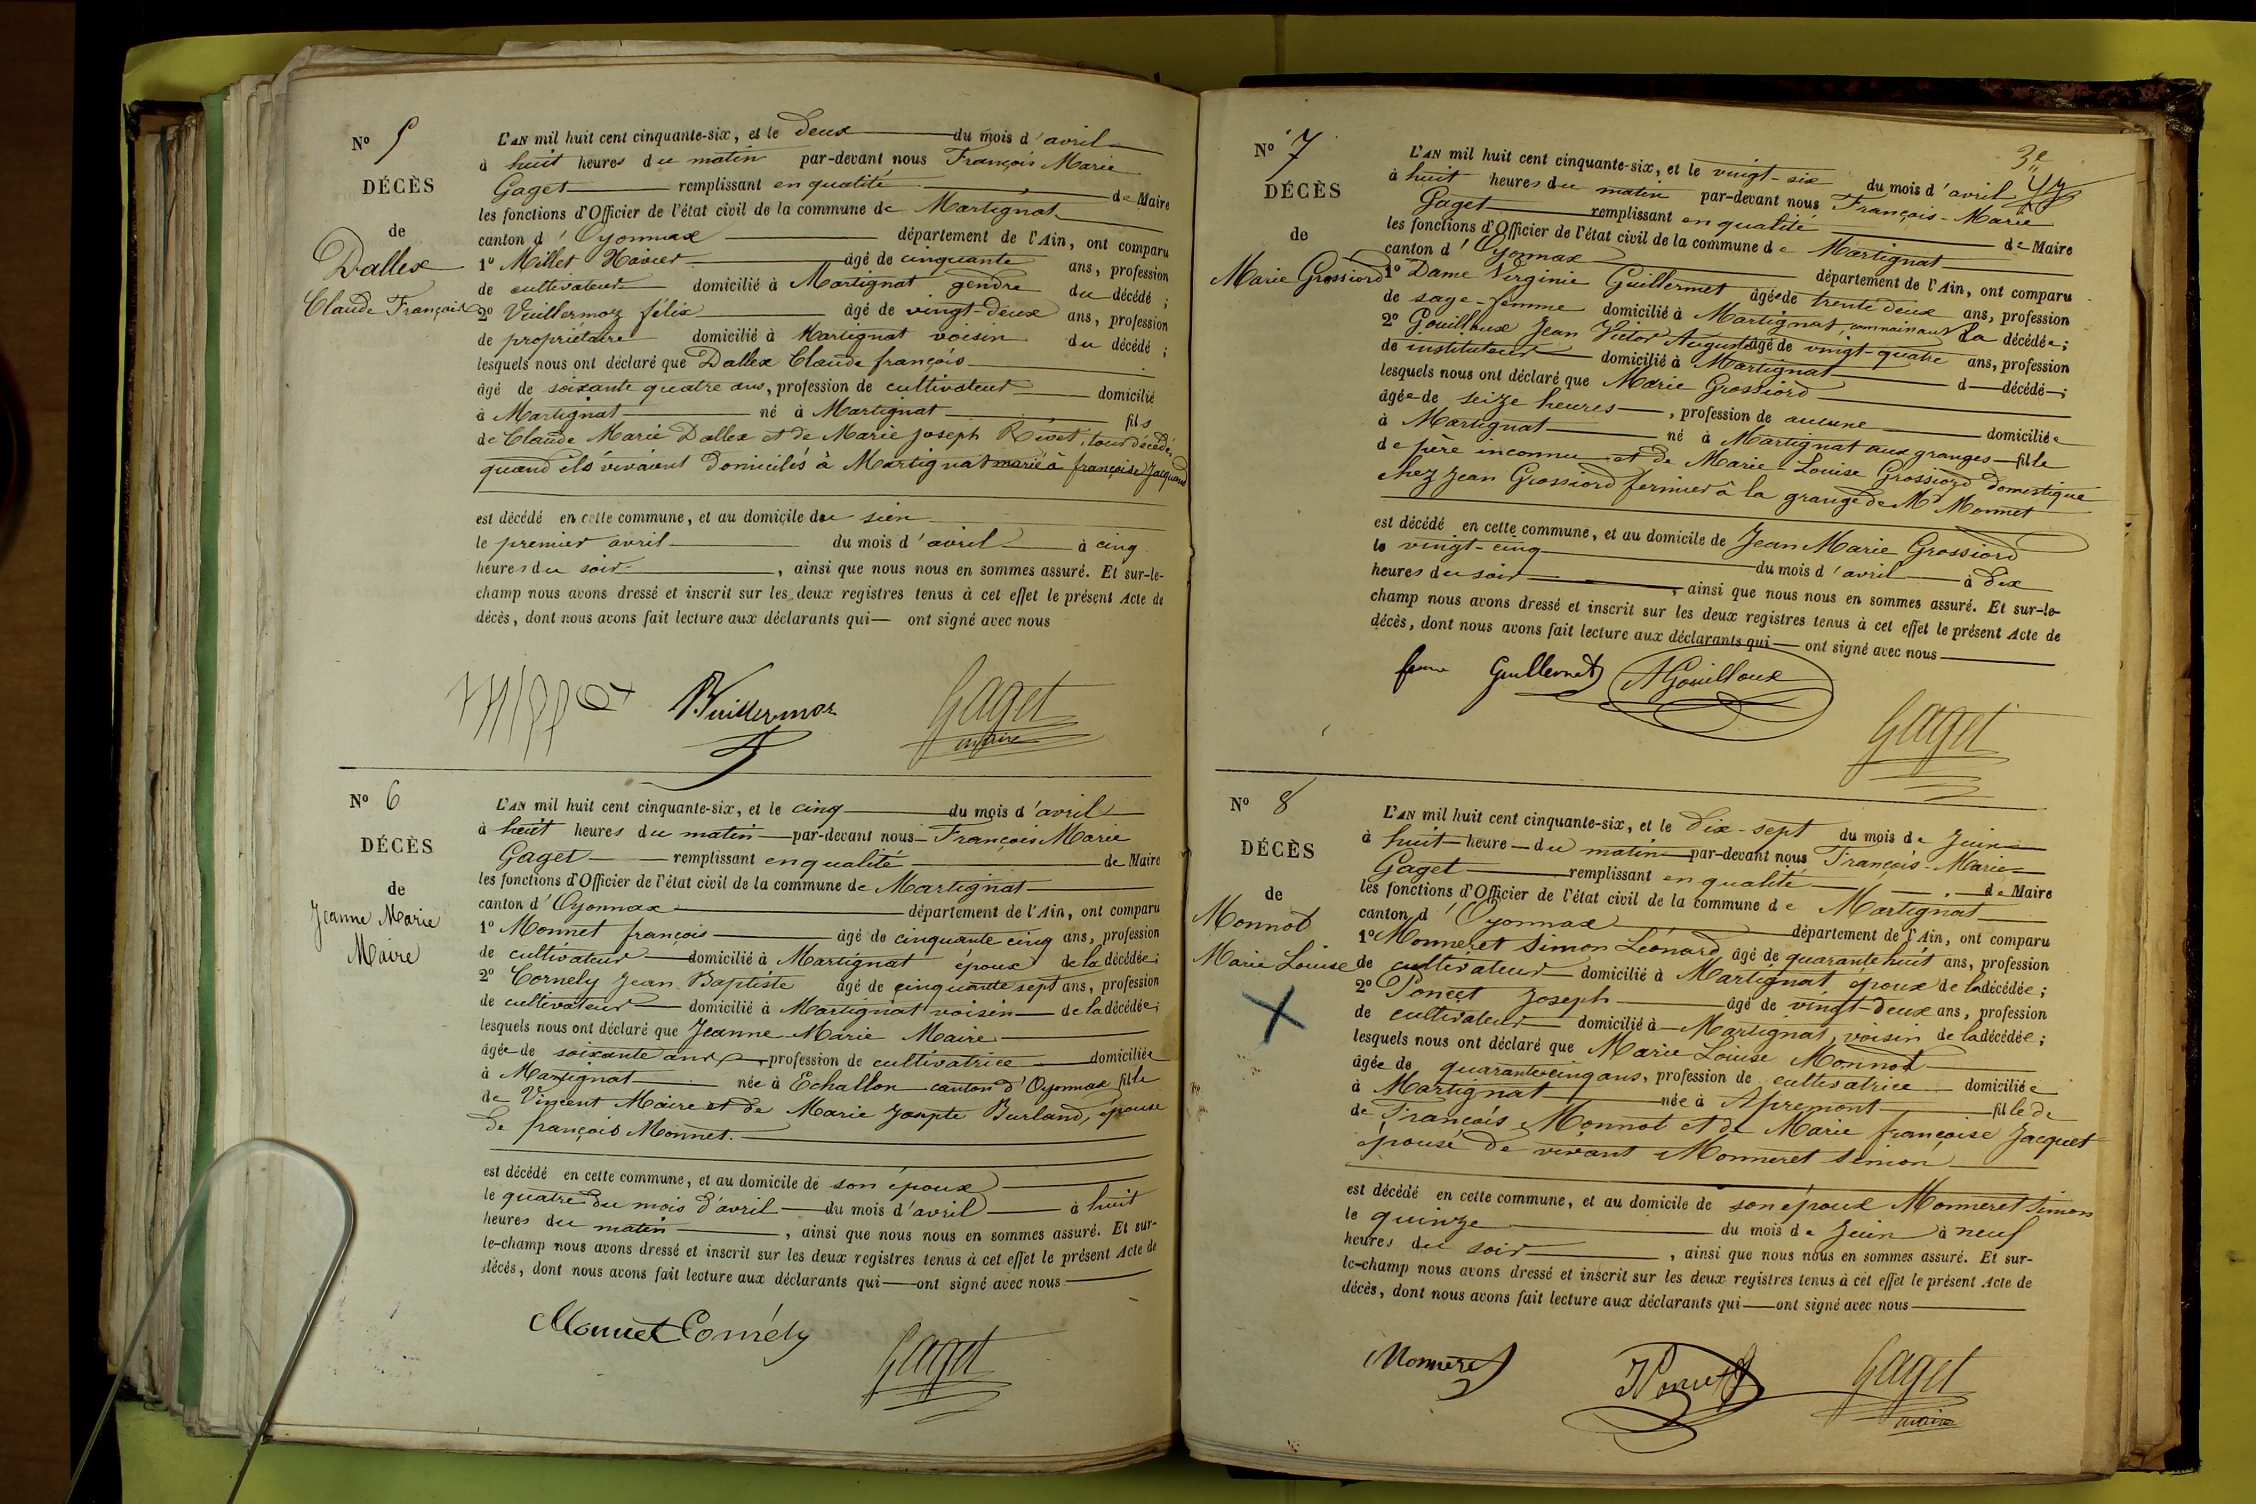 No 5
DÉCÈS
de
Dallex
Claude François
L'AN mil huit cent cinquante-six, et le deux du mois d'avril
à huit heures du matin par-devant nous François Marie
Gaget remplissant en qualité de Maire
les fonctions d'Officier de l'état civil de la commune de Martignat
canton d'Oyonnax département de l'Ain, ont comparu
1o Millet Xavier âgé de cinquante ans, profession
de cultivateur domicilié à Martignat gendre du décédé ;
2o Vuillermoz félix âgé de vingt-deux ans, profession
de propriétaire domicilié à Martignat voisin du décédé ;
lesquels nous ont déclaré que Dallex Claude françois
âgé de soixante quatre ans, profession de cultivateur domicilié
à Martignat né à Martignat fils
de Claude Marie Dallex et de Marie joseph Rivet, tous décédés
quand ils vivaient domiciliés à Martignat marié à françoise Jacquand
est décédé en cette commune, et au domicile du sien
le premier avril du mois d'avril à cinq
heures du soir, ainsi que nous nous en sommes assuré. Et sur-le-
champ nous avons dressé et inscrit sur les deux registres tenus à cet effet le présent Acte de
décès, dont nous avons fait lecture aux déclarants qui ont signé avec nous
Vuillermoz
Gaget
maire
No 6
DÉCÈS
de
Jeanne Marie
Maire
L'AN mil huit cent cinquante-six, et le cinq du mois d'avril
à huit heures du matin par-devant nous François Marie
Gaget remplissant en qualité de Maire
les fonctions d'Officier de l'état civil de la commune de Martignat
canton d'Oyonnax département de l'Ain, ont comparu
1o Monnet françois âgé de cinquante cinq ans, profession
de cultivateur domicilié à Martignat époux de la décédée ;
2o Cornely Jean Baptiste âgé de cinquante sept ans, profession
de cultivateur domicilié à Martignat voisin de la décédée ;
lesquels nous ont déclaré que Jeanne Marie Maire
âgée de soixante ans, profession de cultivatrice domiciliée
à Martignat née à Echallon canton d'Oyonnax fille
de Vincent Maire et de Marie Josepte Burland, épouse
de françois Monnet.
est décédé en cette commune, et au domicile de son époux
le quatre du mois d'avril du mois d'avril à huit
heures du matin, ainsi que nous nous en sommes assuré. Et sur-
le-champ nous avons dressé et inscrit sur les deux registres tenus à cet effet le présent Acte de
décès, dont nous avons fait lecture aux déclarants qui ont signé avec nous
Monnet Cornély
Gaget
3e
No 7
DÉCÈS
de
Marie Grossiord
L'AN mil huit cent cinquante-six, et le vingt-six du mois d'avril
à huit heures du matin par-devant nous François-Marie
Gaget remplissant en qualité de Maire
les fonctions d'Officier de l'état civil de la commune de Martignat
canton d'Oyonnax département de l'Ain, ont comparu
1o Dame Virginie Guillermet âgée de trente deux ans, profession
de sage-femme domicilié à Martignat, connaissant la décédée ;
2o Gouilloux Jean Victor Auguste âgé de vingt-quatre ans, profession
de instituteur domicilié à Martignat d décédé ;
lesquels nous ont déclaré que Marie Grossiord
âgée de seize heures, profession de aucune domiciliée
à Martignat né à Martignat aux granges fille
de père inconnu et de Marie-Louise Grossiord domestique
chez Jean Grossiord fermier à la grange de Mr Monnet
est décédé en cette commune, et au domicile de Jean Marie Grossiord
le vingt-cinq du mois d'avril à dix
heures du soir, ainsi que nous nous en sommes assuré. Et sur-le-
champ nous avons dressé et inscrit sur les deux registres tenus à cet effet le présent Acte de
décès, dont nous avons fait lecture aux déclarants qui ont signé avec nous
feme Guillermet AGouilloux
Gaget
No 8
DÉCÈS
de
Monnot
Marie Louise
L'AN mil huit cent cinquante-six, et le dix-sept du mois de Juin
à huit heure du matin par-devant nous François-Marie
Gaget remplissant en qualité de Maire
les fonctions d'Officier de l'état civil de la commune de Martignat
canton d'Oyonnax département de l'Ain, ont comparu
1o Monneret Simon Léonard âgé de quarante huit ans, profession
de cultivateur domicilié à Martignat, époux de la décédée ;
2o Poncet Joseph âgé de vingt-deux ans, profession
de cultivateur domicilié à Martignat, voisin de la décédée ;
lesquels nous ont déclaré que Marie Louise Monnot
âgée de quarante cinq ans, profession de cultivatrice domiciliée
à Martignat née à Apremont fille de
de François Monnot et de Marie françoise Jacquet
épouse de vivant Monneret Simon
est décédé en cette commune, et au domicile de son époux Monneret Simon
le quinze du mois de Juin à neuf
heures du soir, ainsi que nous nous en sommes assuré. Et sur-
le-champ nous avons dressé et inscrit sur les deux registres tenus à cet effet le présent Acte de
décès, dont nous avons fait lecture aux déclarants qui ont signé avec nous
Monneret
JPoncet
Gaget
maire